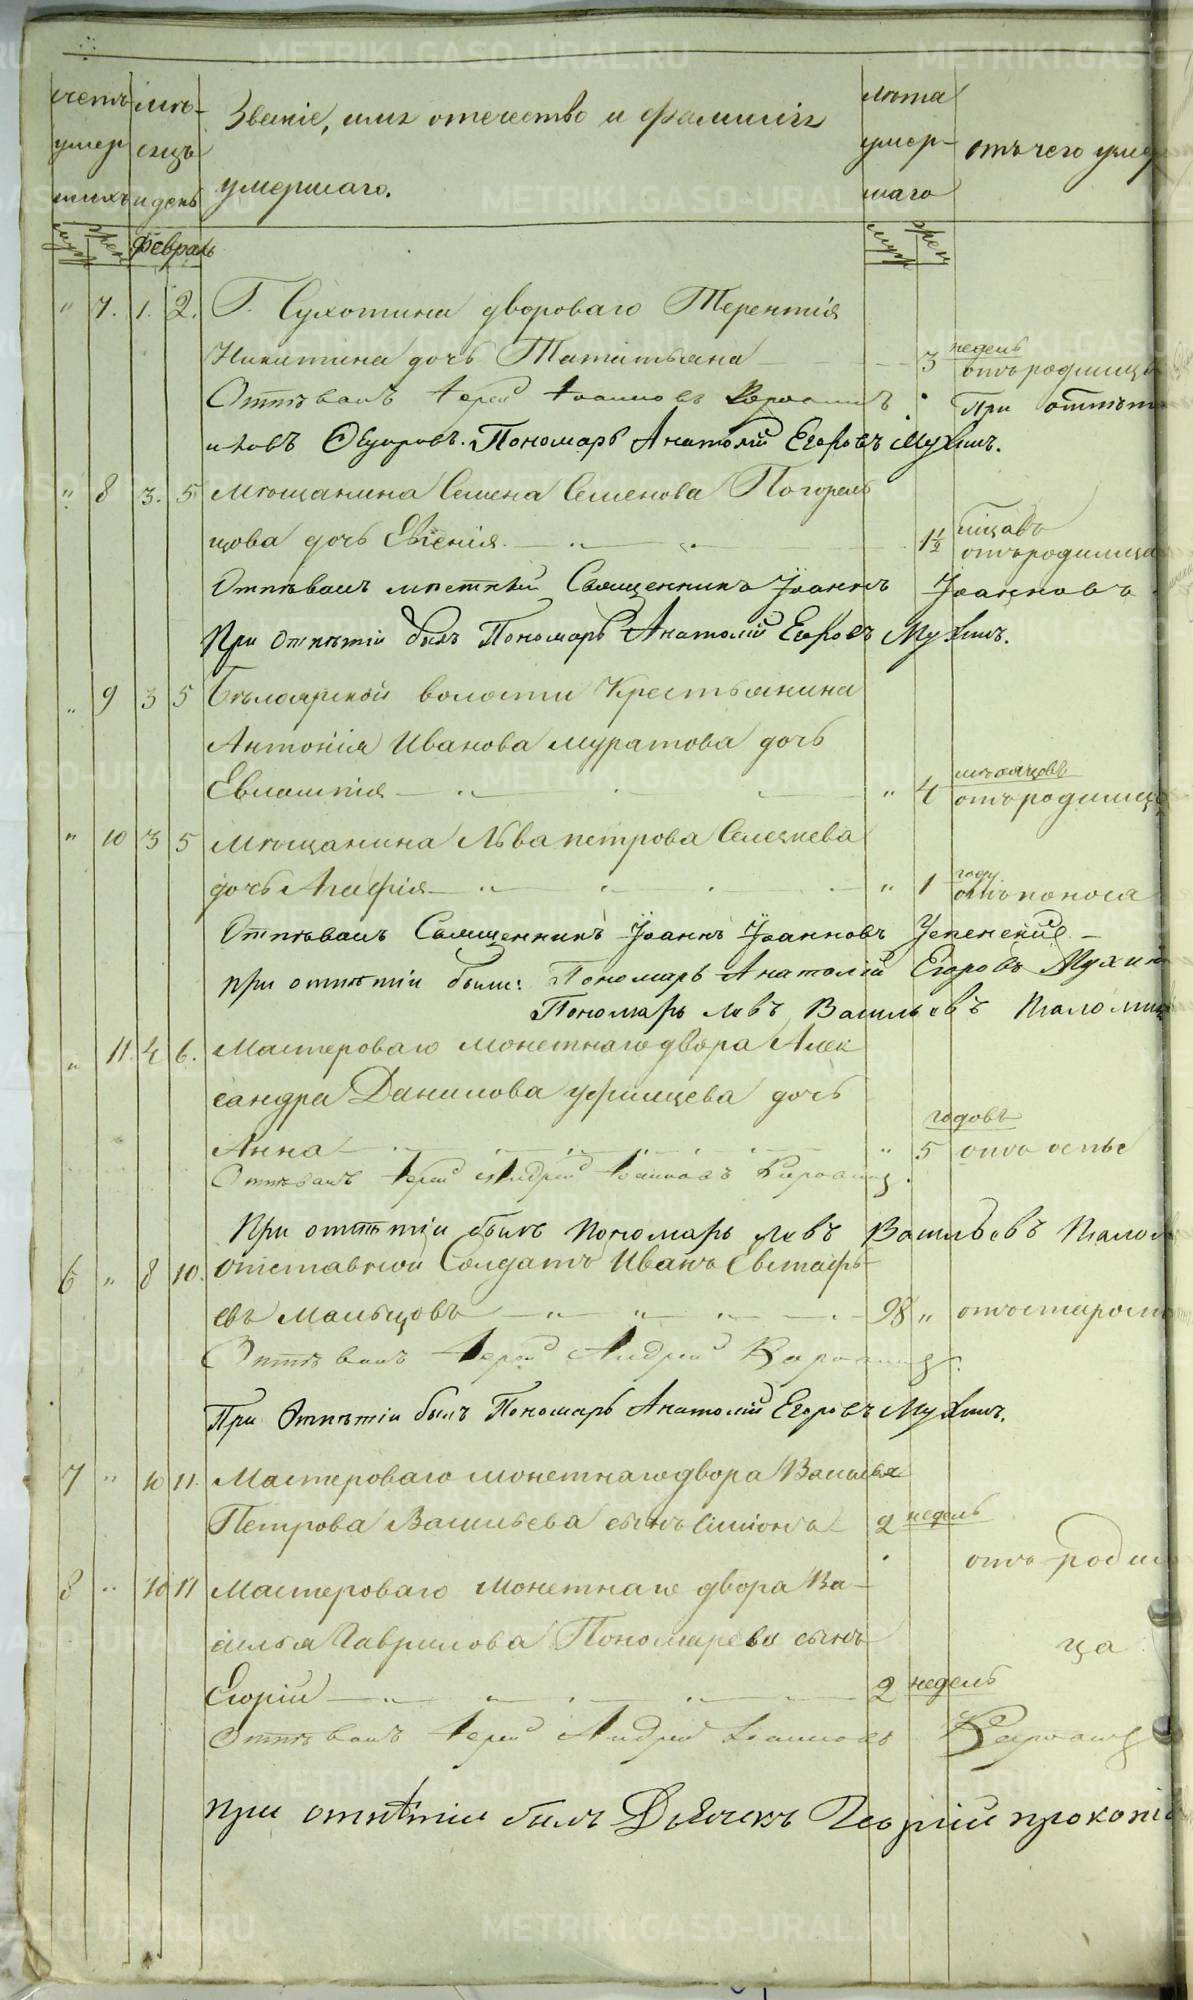 счетъ умер шихъ
мѣ- сяцъ и день
Званіе, имя отечество и фамилія умершаго.
лѣта умер- шаго
отъ чего умер
муж жен Февраль муж жен
" 7. 1. 2. Г. Сухотина двороваго Терентія
Никитина дочь Тататьяна 3 недель отъ родимца
Отпѣвалъ Іерей Іоанновъ При отпѣт
иковъ Ѳедоровъ. Пономарь Анатолій Егоровъ Мухинъ.
" 8 3. 5 Мѣщанина Семена Семенова Погорель
цова дочь Евгенія. 1½ мѣсяцъ отъ родимца
Отпѣвалъ мѣстный Священникъ Іоаннъ Іоанновъ
При отпѣтіи былъ Пономарь Анатолій Егоровъ Мухинъ.
" 9 3 5 Бѣлоярской волости Крестьянина
Антонія Иванова Муратова дочь
Евлампія " 4 мѣсяцовъ отъ родимца
" 10 3 5 Мѣщанина Льва Петрова Селезнева
дочь Агафія " 1 году отъ поноса
Отпѣвалъ Священникъ Іоаннъ Іоанновъ Успенский
при отпѣтіи были: Пономарь Анатолій Егоровъ Мухин
Пономарь Левъ Васильевъ
" 11. 4 6. Мастероваго монетнаго двора Алек
сандра Данилова Уфимцева дочь
Анна " 5 годовъ отъ оспы
Отпѣвалъ Іерей Андрей Іоанновъ
При отпѣтіи былъ Пономарь Левъ Васильевъ
6 " 8 10. Отставной Солдатъ Иванъ Евстафь
евъ Мальцовъ 98 " отъ старости
Отпѣвалъ Іерей Андрей
При Отпѣтіи былъ Пономарь Анатолій Егоровъ Мухинъ.
7 " 10 11. Мастероваго монетнаго двора Василья
Петрова Васильева сынъ Симіонъ 2 недель
отъ родим
8 " 10 11 Мастероваго монетнаго двора Ва-
силья Гаврилова Пономарева сынъ ца
Егорій 2 недель
Отпѣвалъ Іерей Андрей Іоанновъ
при отпѣтіи былъ Дьячекъ Георгій прокопі
METRIKI.GASO-URAL.RU